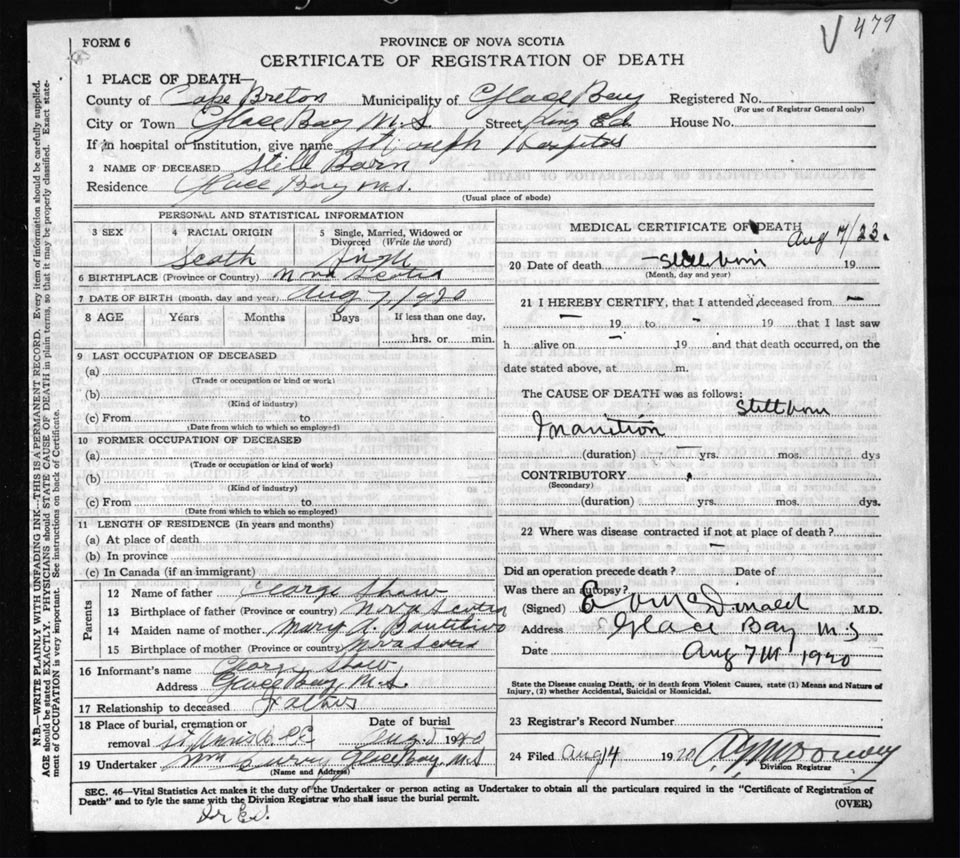 V 479
FORM 6
PROVINCE OF NOVA SCOTIA
CERTIFICATE OF REGISTRATION OF DEATH
1 PLACE OF DEATH—
County of Cape Breton Municipality of Glace Bay Registered No.
(For use of Registrar General only)
City or Town Glace Bay N.S Street King Ed House No.
If in hospital or institution, give name St Joseph Hospital
2 NAME OF DECEASED Still Born
Residence Glace Bay N.S.
(Usual place of abode)
PERSONAL AND STATISTICAL INFORMATION
3 SEX 4 RACIAL ORIGIN 5 Single, Married, Widowed or
Divorced (Write the word)
Scoth Single
6 BIRTHPLACE (Province or Country) Nova Scotia
7 DATE OF BIRTH (month, day and year) Aug 7, 1920
8 AGE Years Months Days If less than one day,
hrs. or min.
9 LAST OCCUPATION OF DECEASED
(a)
(Trade or occupation or kind or work)
(b)
(Kind of industry)
(c) From to
(Date from which to which so employed)
10 FORMER OCCUPATION OF DECEASED
(a)
(Trade or occupation or kind or work)
(b)
(Kind of industry)
(c) From to
(Date from which to which so employed)
11 LENGTH OF RESIDENCE (In years and months)
(a) At place of death
(b) In province
(c) In Canada (if an immigrant)
Parents
12 Name of father George Shaw
13 Birthplace of father (Province or country) Nova Scotia
14 Maiden name of mother Mary A
15 Birthplace of mother (Province or country) Nova Scotia
16 Informant's name George Shaw
Address Glace Bay, N.S
17 Relationship to deceased Father
18 Place of burial, cremation or Date of burial
removal Aug 1920
19 Undertaker Wm Curry Glace Bay. N.S
(Name and Address)
MEDICAL CERTIFICATE OF DEATH
Aug 7/23.
20 Date of death —Stillborn 19
(Month, day and year)
21 I HEREBY CERTIFY, that I attended deceased from —
— 19 to - 19 that I last saw
h alive on — ,19 and that death occurred, on the
date stated above, at m.
The CAUSE OF DEATH was as follows: Stillborn
Inanition
(duration) — yrs. mos. dys
CONTRIBUTORY
(Secondary)
(duration) yrs. mos. dys.
22 Where was disease contracted if not at place of death?
—
Did an operation precede death? Date of
Was there an autopsy?
(Signed) McDonald M.D.
Address Glace Bay N.S
Date Aug 7th 1920
State the Disease causing Death, or in death from Violent Causes, state (1) Means and Nature of
Injury, (2) whether Accidental, Suicidal or Homicidal.
23 Registrar's Record Number
24 Filed Aug 14 1920
Division Registrar
SEC. 46—Vital Statistics Act makes it the duty of the Undertaker or person acting as Undertaker to obtain all the particulars required in the "Certificate of Registration of
Death" and to fyle the same with the Division Registrar who shall issue the burial permit.
(OVER)
N.B.—WRITE PLAINLY WITH UNFADING INK—THIS IS A PERMANENT RECORD. Every item of information should be carefully supplied.
AGE should be stated EXACTLY. PHYSICIANS should STATE CAUSE OF DEATH in plain terms, so that it may be properly classified. Exact state-
ment of OCCUPATION is very important. See instructions on back of Certificate.